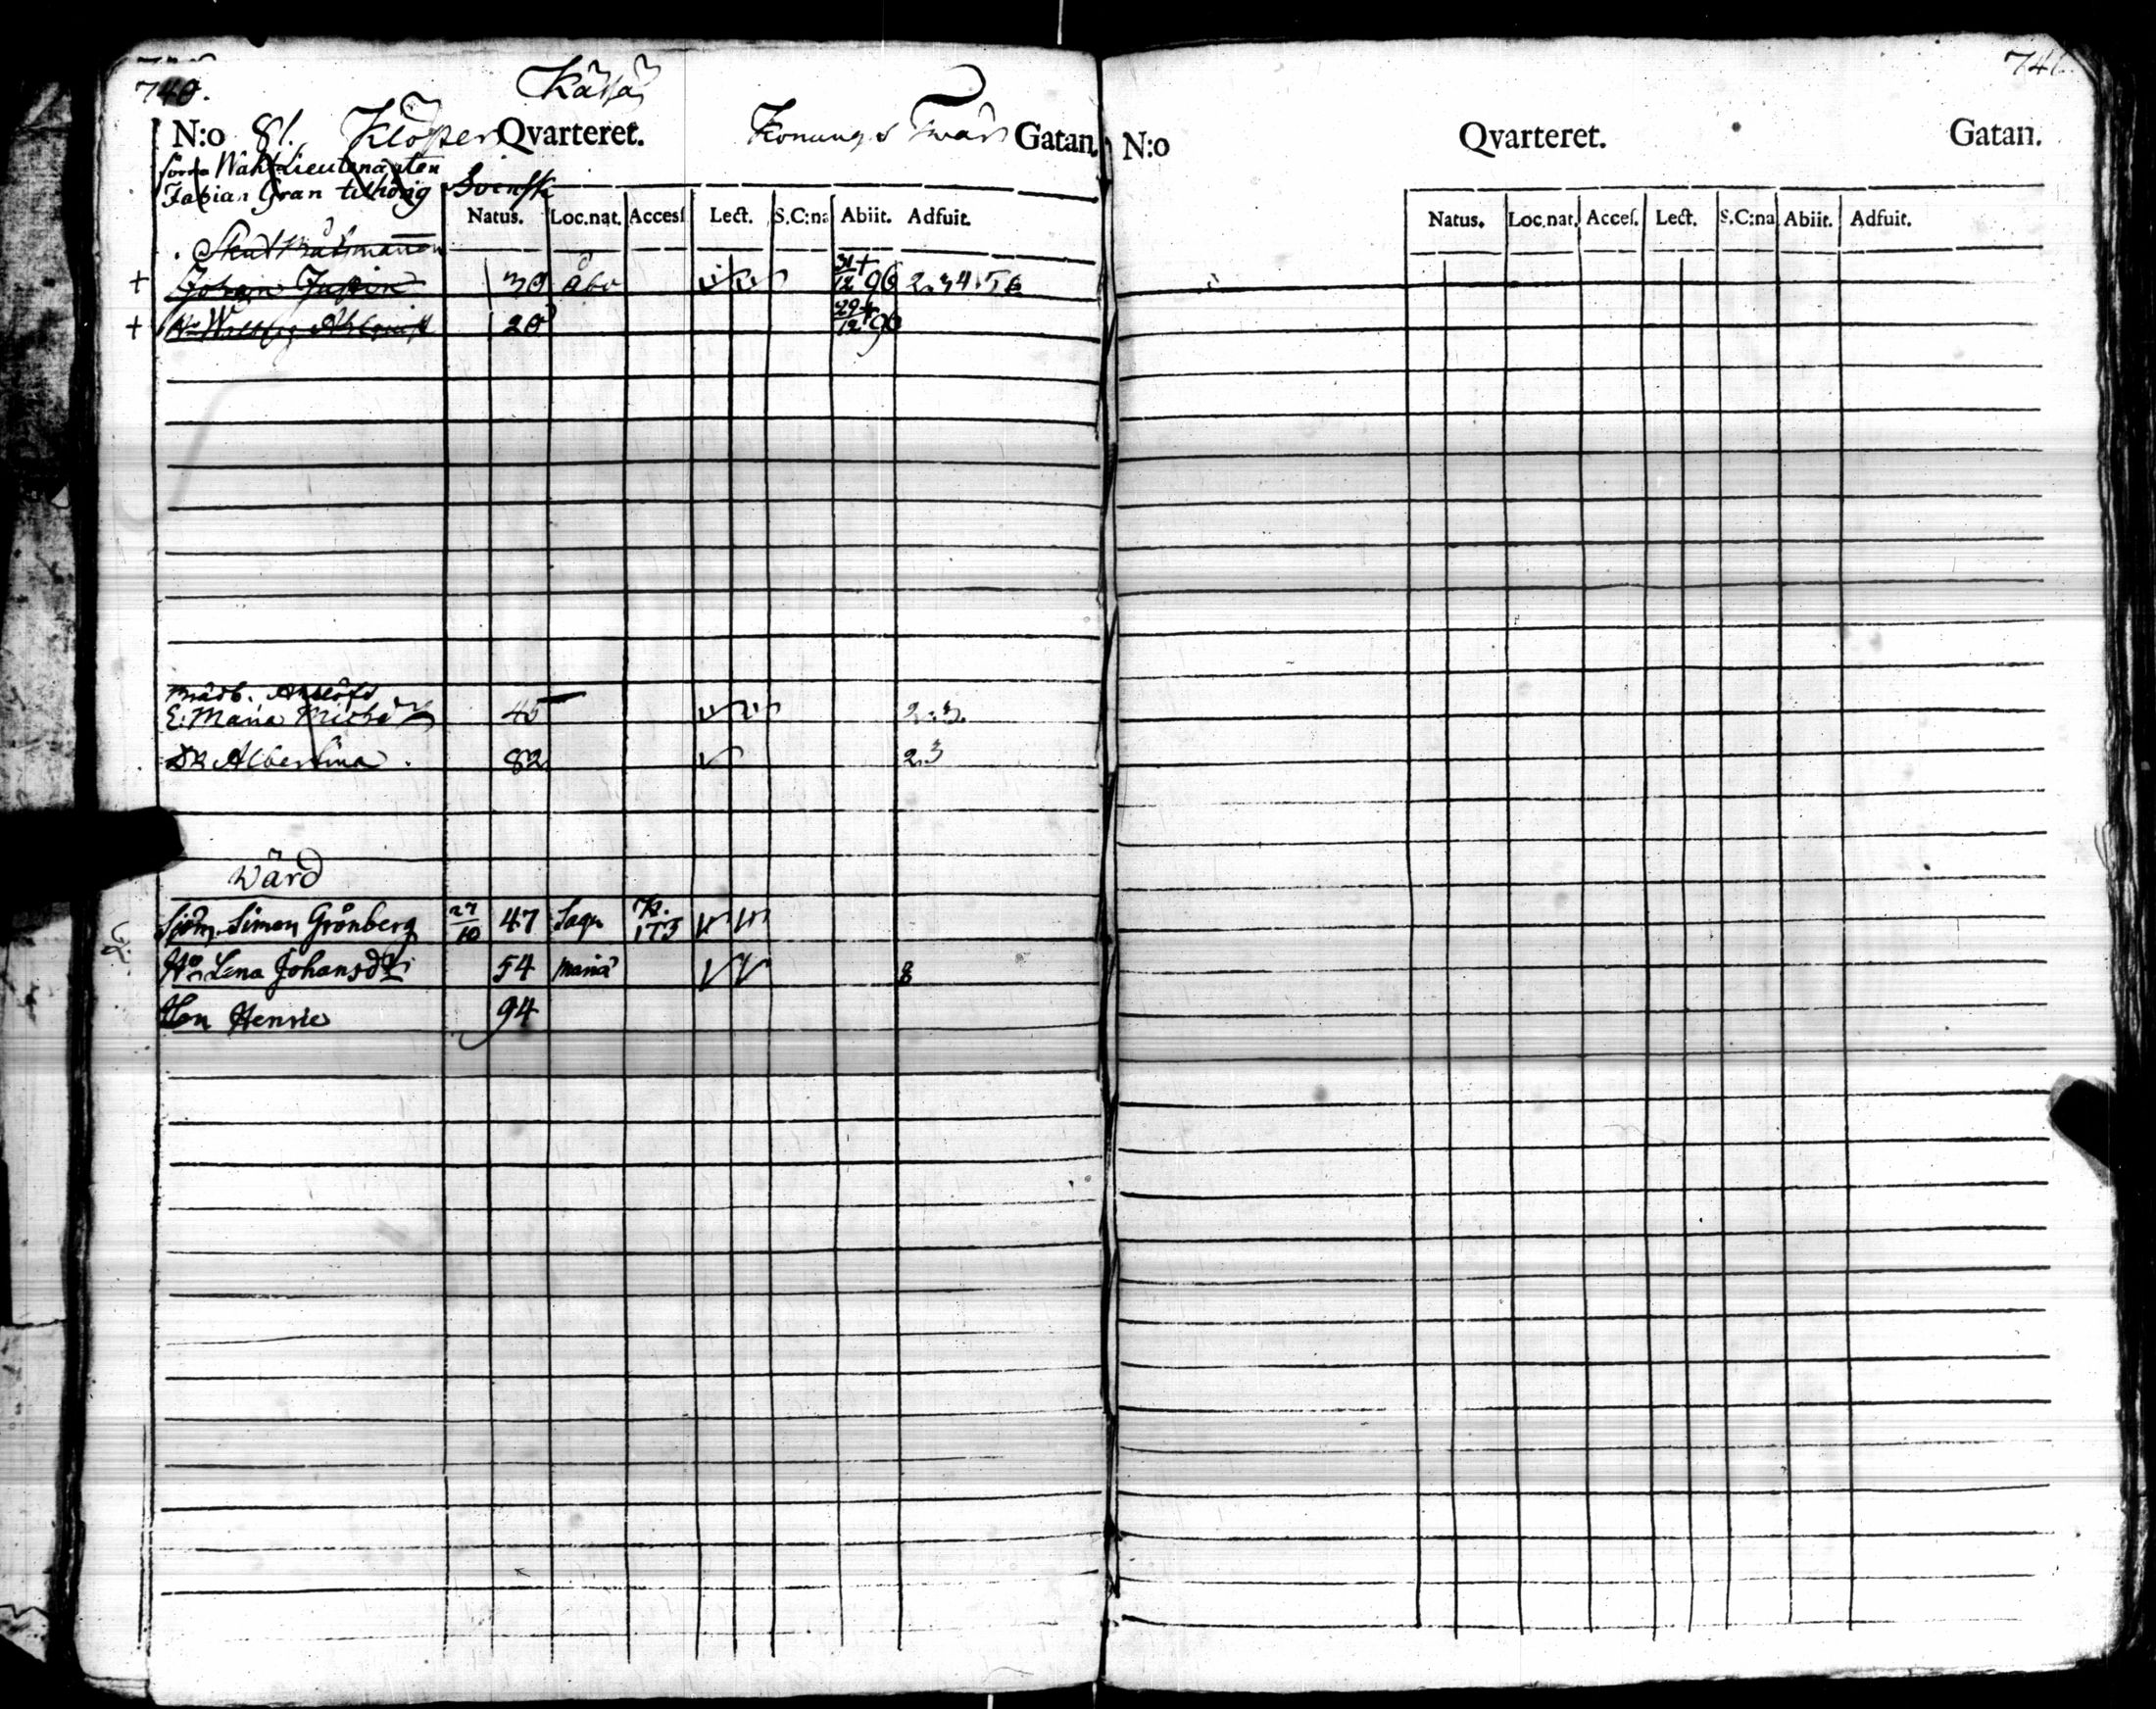 740.
Kässä
N:o 81. Klöper Qvarteret. Konungs Twär Gatan.
förra Wakt Lieutenanten
Fabian Gran tilhörig Svensk
Natus. Loc.nat. Access Lect. S.C:na Abiit. Adfuit.
+ Johan 39 Åbo 31/12 + 96 2.3.4.5.6
+ 20 29/12 + 96
E: Maria 45 2.3.
Dr Albertina. 82 2.3
Wärd
Sjöm. Simon Grönberg 27/10 47 Sagu 173
H:u Lena Johansdr 54 Mariæ 8
Son Henric 94
741.
N:o Qvarteret. Gatan.
Natus. Loc.nat. Acces. Lect. S.C:na Abiit. Adfuit.